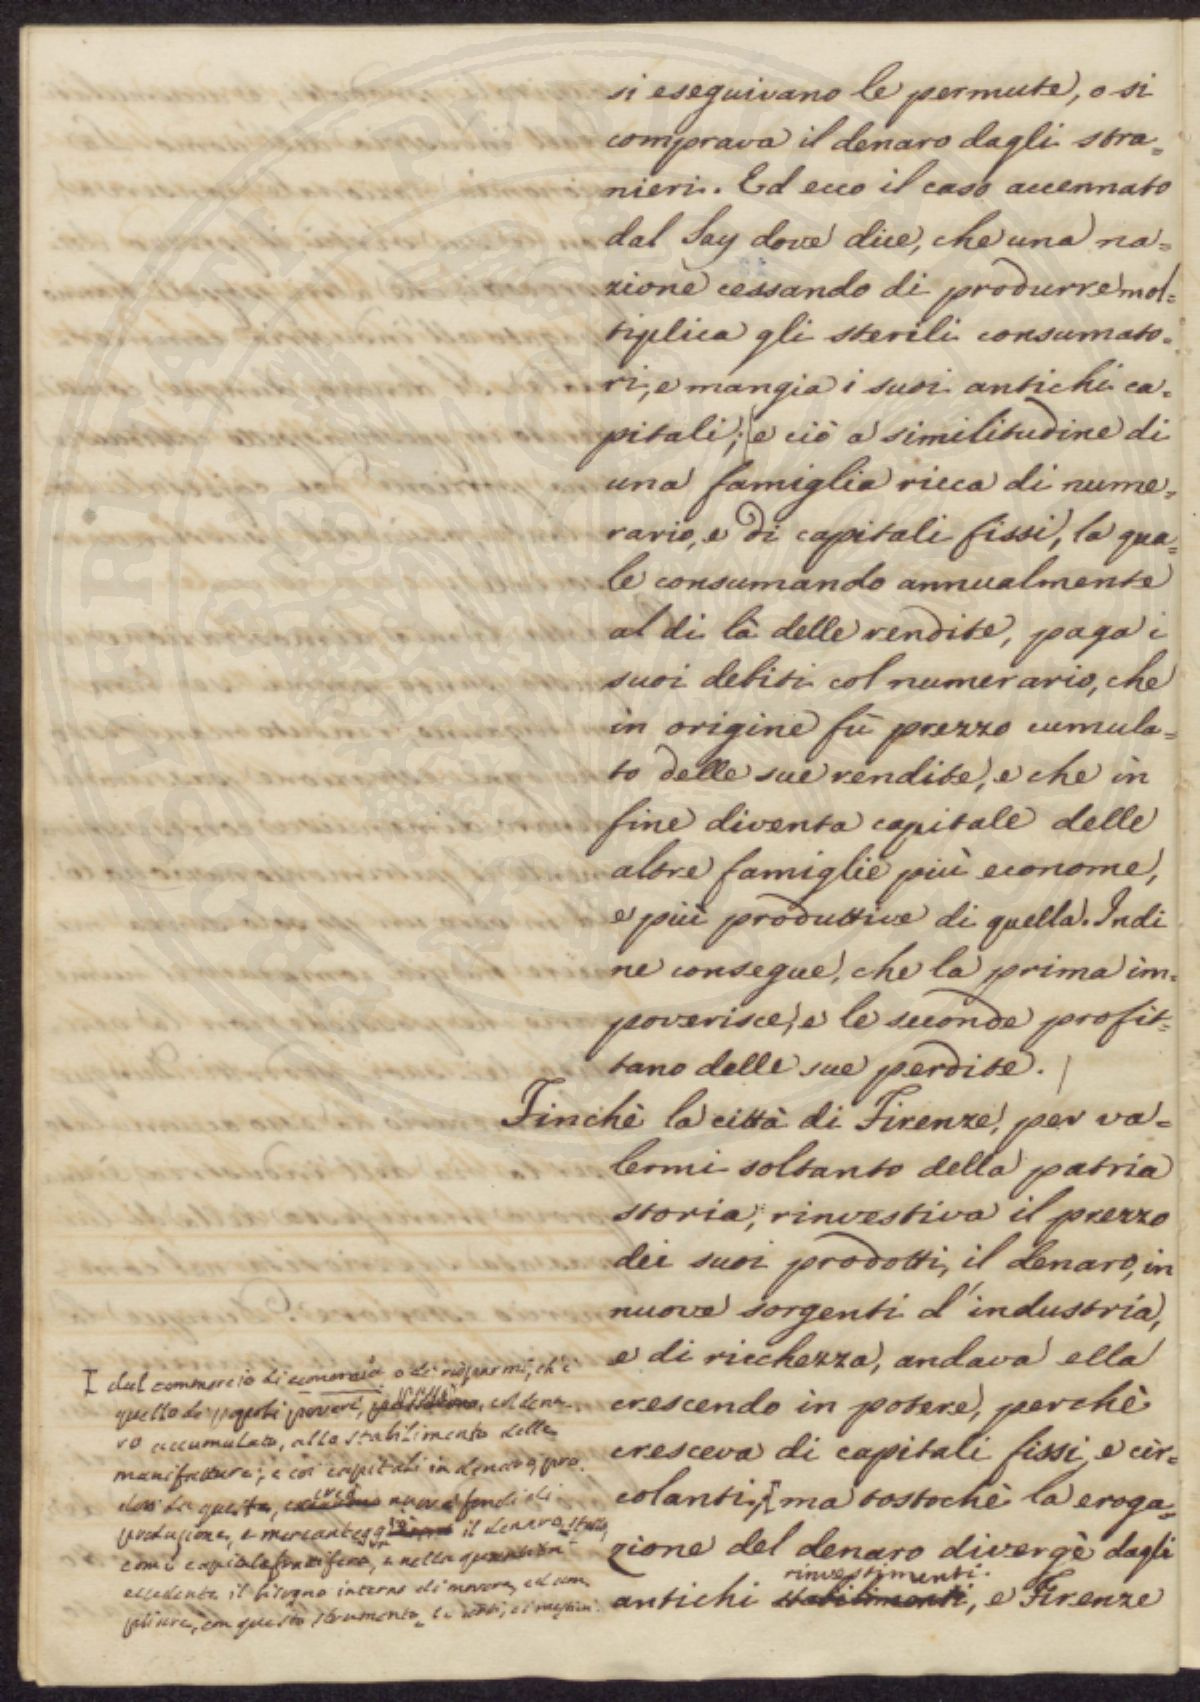 si eseguivano le permute, o si
comprava il denaro dagli stra=
nieri. Ed ecco il caso accennato
dal Say dove dice, che una na=
zione cessando di produrre mol=
tiplica gli sterili consumato=
ri, e mangia i suoi antichi ca=
pitali; e ciò a similitudine di
una famiglia ricca di nume=
rario, e di capitali fissi, la qua=
le consumando annualmente
al di là delle rendite, paga i
suoi debiti col numerario, che
in origine fù prezzo cumula=
to delle sue rendite, e che in
fine diventa capitale delle
altre famiglie più econome,
e più produttive di quella. Indi
ne consegue, che la prima im=
poverisce, e le seconde profit=
tano delle sue perdite.
Finchè la città di Firenze, per va=
lermi soltanto della patria
storia, rinvestiva il prezzo
dei suoi prodotti, il denaro, in
nuove sorgenti d'industria,
e di ricchezza, andava ella
crescendo in potere, perchè
cresceva di capitali fissi, e cir=
colanti, ma tostochè la eroga=
zione del denaro divergè dagli
rinvestimenti.
antichi stabilimenti, e Firenze
dal commercio di economia o di risparmi, ch'è
quello di popoli poveri, col dena
ro accumulato, allo stabilimento delle
manifatture; e coi capitali in denaro pro
dotti da queste, nuovi fondi di
produzione, e il denaro
come capitale fruttifero, e nella
eccedente il bisogno interno di
con questo strumento